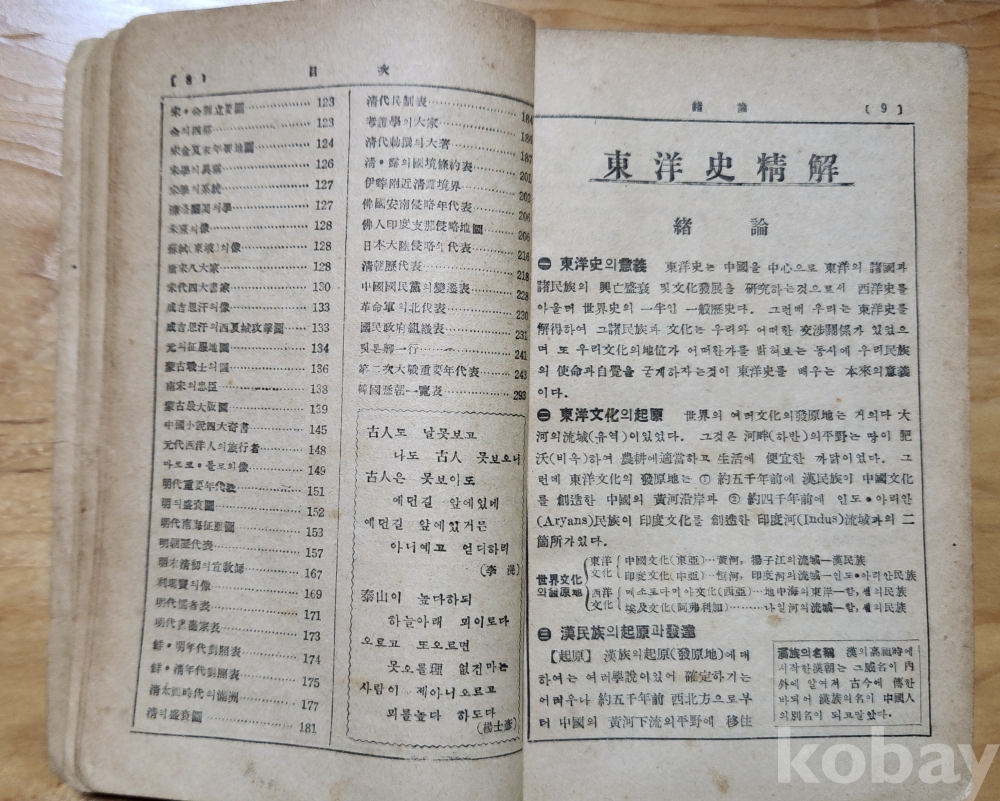 【8】 目 次
宋・金對立要圖 123
金의四鄰 123
宋金夏末年要地圖 124
宋學의異端 126
宋學의系統 127
濂洛關閩의學 127
朱熹의像 128
蘇軾(東坡)의像 128
唐宋八大家 128
宋代四大書家 130
成吉思汗의像 133
成吉思汗의西夏城攻擊圖 133
元의征服地圖 134
蒙古戰士의圖 136
南宋의忠臣 138
蒙古最大版圖 139
中國小說四大奇書 145
元代西洋人의旅行者 148
마르코・폴로의像 149
明代重要年代表 151
明의盛衰圖 152
明代南海征服圖 153
明朝歷代表 157
明末清初의宣敎師 167
利瑪竇의像 169
明代儒者表 171
明代書畵家表 173
鮮・明年代對照表 174
鮮・淸年代對照表 175
淸太祖時代의滿洲 177
淸의盛衰圖 181
淸代兵制表 184
考證學의大家 186
淸代勅撰의大著 187
淸・露의國境條約表 201
伊犁附近淸露境界 202
佛國安南侵略年代表 206
佛人印度支那侵略地圖 206
日本大陸侵略年代表 216
淸朝歷代表 218
中國國民黨의變遷表 228
革命軍의北伐表 230
國民政府組織表 231
릿튼卿一行 241
第二次大戰重要年代表 243
韓國歷朝一覽表 293
古人도 날못보고
나도 古人 못보오니
古人은 못보이도
예던길 앞에있네
예던길 앞에있거든
아니예고 엇디하리
(李 滉)
泰山이 높다하되
하늘아래 뫼이로다
오르고 또오르면
못오를理 없건마는
사람이 제아니오르고
뫼를높다 하도다
(楊士彥)
緖 論 【9】
東洋史精解
緖 論
㊀ 東洋史의意義 東洋史는 中國을 中心으로 東洋의 諸國과
諸民族의 興亡盛衰 및文化發展을 硏究하는것으로서 西洋史를
아울며 世界史의 一半인 一般歷史다. 그런데 우리는 東洋史를
解得하여 그諸民族과 文化는 우리와 어떠한 交涉關係가 있었으
며 또 우리文化의地位가 어떠한가를 밝혀보는 동시에 우리民族
의 使命과自覺을 굳게하자는것이 東洋史를 배우는 本來의意義
이다.
㊁ 東洋文化의起原 世界의 여러文化의發原地는 거의다 大
河의流域(유역)이있었다. 그것은 河畔(하반)의平野는 땅이 肥
沃(비옥)하여 農耕에適當하고 生活에 便宜한 까닭이었다. 그
런데 東洋文化의 發原地는 ① 約五千年前에 漢民族이 中國文化
를 創造한 中國의 黃河沿岸과 ② 約四千年前에 인도・아리안
(Aryans)民族이 印度文化를 創造한 印度河(Indus)流域과의 二
箇所가있다.
世界文化와諸原地
東洋文化 中國文化(東亞)…黃河, 揚子江의流域—漢民族
印度文化(中亞)…恒河, 印度河의流域—인도・아리안民族
西洋文化 메소포다미아文化(西亞)…地中海의東岸—함, 셈의民族
埃及文化(阿弗利加)………나일河의流域—함, 셈의民族
㊂ 漢民族의起原과發達
【起原】 漢族의起原(發原地)에 대
하여는 여러學說이있어 確定하기는
어려우나 約五千年前 西北方으로부
터 中國의 黃河下流의平野에 移住
漢族의名稱 漢의高祖時에
시작한漢朝는 그威名이 內
外에 알여져 古今에 傳한
바되어 漢族의名이 中國人
의別名이 되고말았다.
kobay